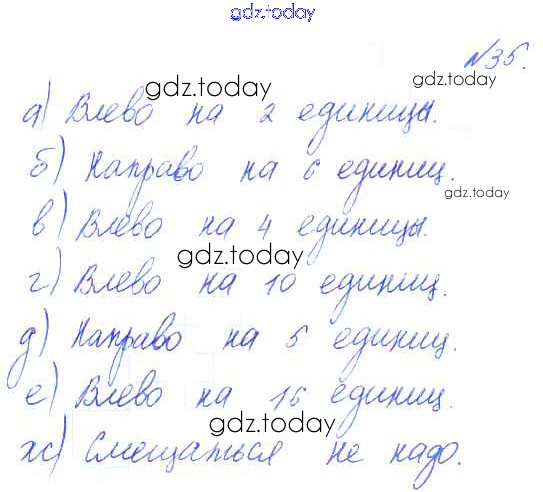 gdz.today
№35.
gdz.today
gdz.today
а) Влево на 2 единицы.
б) Направо на 6 единиц.
gdz.today
в) Влево на 4 единицы.
gdz.today
г) Влево на 10 единиц.
д) Направо на 5 единиц.
е) Влево на 16 единиц.
gdz.today
ж) Смещаться не надо.
gdz.today